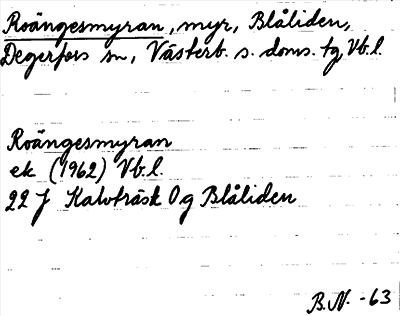 Roängesmyran, myr, Blåliden,
Degerfors sn, Västerb. s. doms. tg, Vb.l.
Roängesmyran
ek (1962) Vb.l.
22 J Kalvträsk 0 g Blåliden
B.N. -63